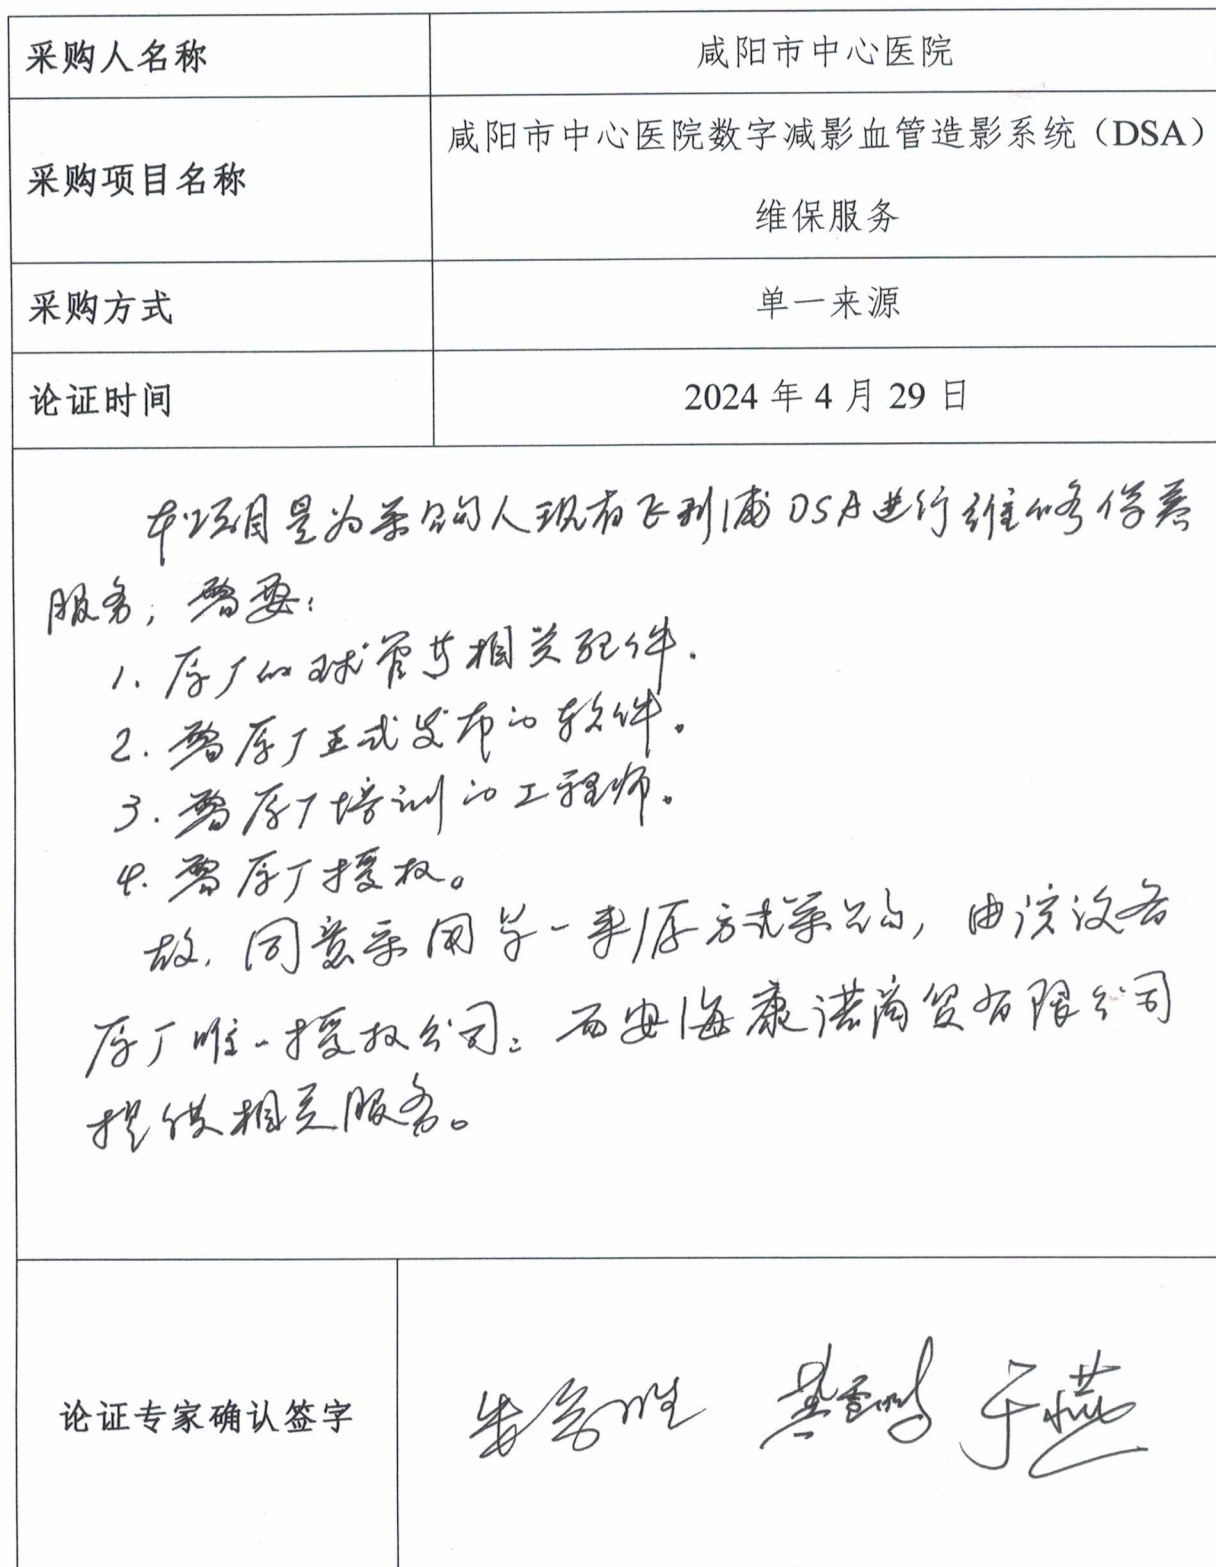 采购人名称 咸阳市中心医院
采购项目名称 咸阳市中心医院数字减影血管造影系统（DSA）
维保服务
采购方式 单一来源
论证时间 2024 年 4 月 29 日
本项目是为采购人现有飞利浦DSA进行维修保养
服务，需要：
1. 原厂的球管等相关配件.
2. 需原厂正式发布的软件。
3. 需原厂培训的工程师。
4. 需原厂授权。
故，同意采用单一来源方式采购，由该设备
原厂唯一授权公司：西安海康诺商贸有限公司
提供相关服务。
论证专家确认签字 于燕